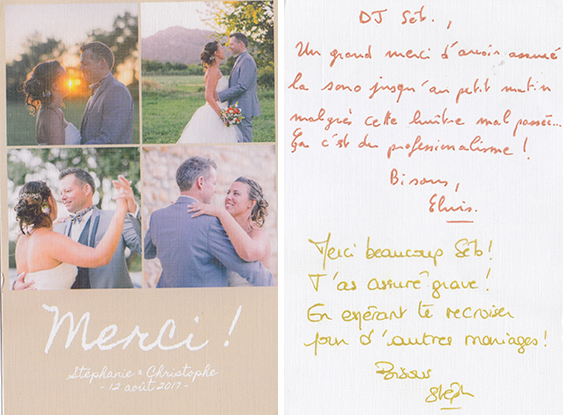 Merci !
Stéphanie & Christophe
- 12 août 2017 -
DJ Séb.,
Un grand merci d'avoir assuré
la sono jusqu'au petit matin
malgré cette huître mal passée...
Ça c'est du professionalisme !
Bisous,
Elvis.
Merci beaucoup Séb !
T'as assuré grave !
En espérant te recroiser
pour d'autres mariages !
Bisous
Steph